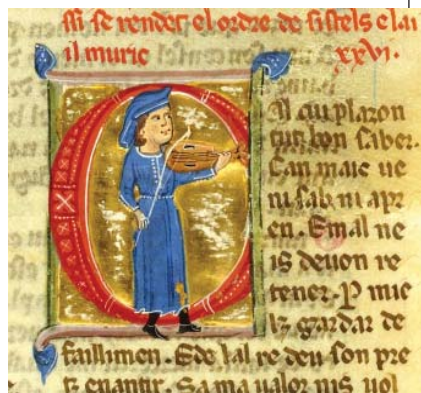 ssi se rendet el ordre de sistels e lai
il muric xxvi.
Al cui plazon
tut bon saber.
Can maic ue
ni sab ni apr
en. Emal ne
is deuon re
tener. P mie
lz gardar de
faillimen. Ede lal re deu son pre
tz enantir. Sa ma ualor nis uol